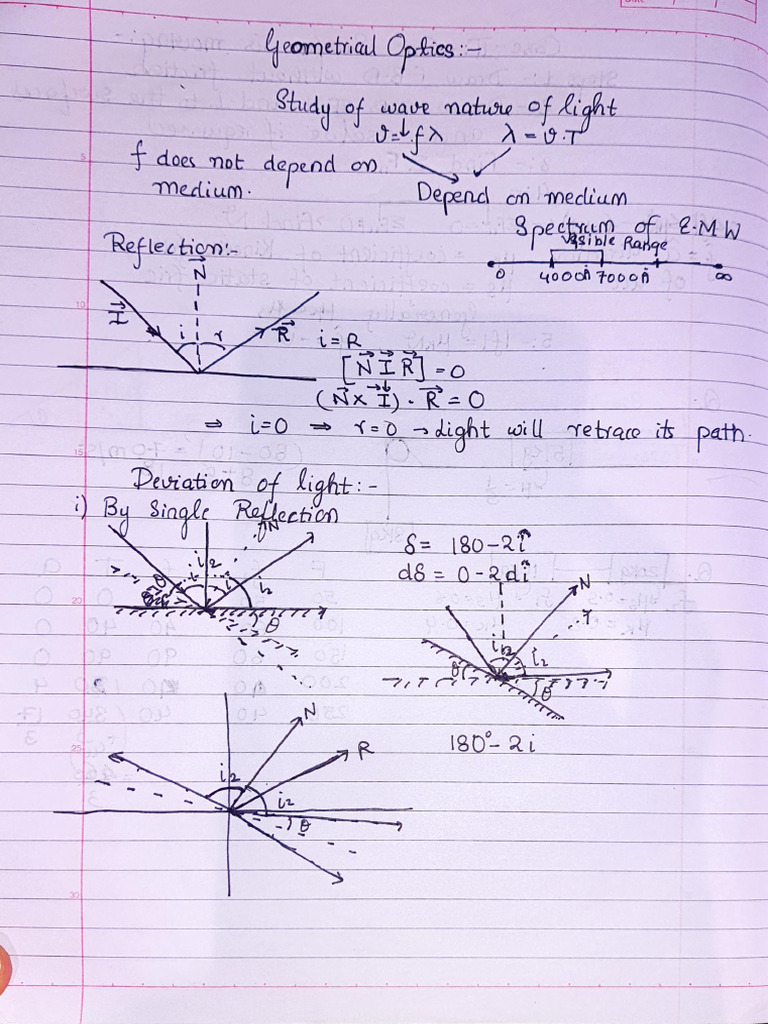 Geometrical Optics:-
Study of wave nature of light
v = f λ    λ = v.T
f does not depend on
medium.
Depend on medium
Spectrum of E.M W
Visible Range
0 4000Å 7000Å ∞
Reflection:-
N
I i r R
i = R
[N I R] = 0
(N × I) · R = 0
⇒ i=0 ⇒ r=0 → Light will retrace its path.
Deviation of light:-
i) By Single Reflection
N
δ = 180 - 2i
dδ = 0 - 2di
i2 i i i2
θ
N
r
i2 i2
θ θ
180° - 2i
N
R
i2 i2
θ